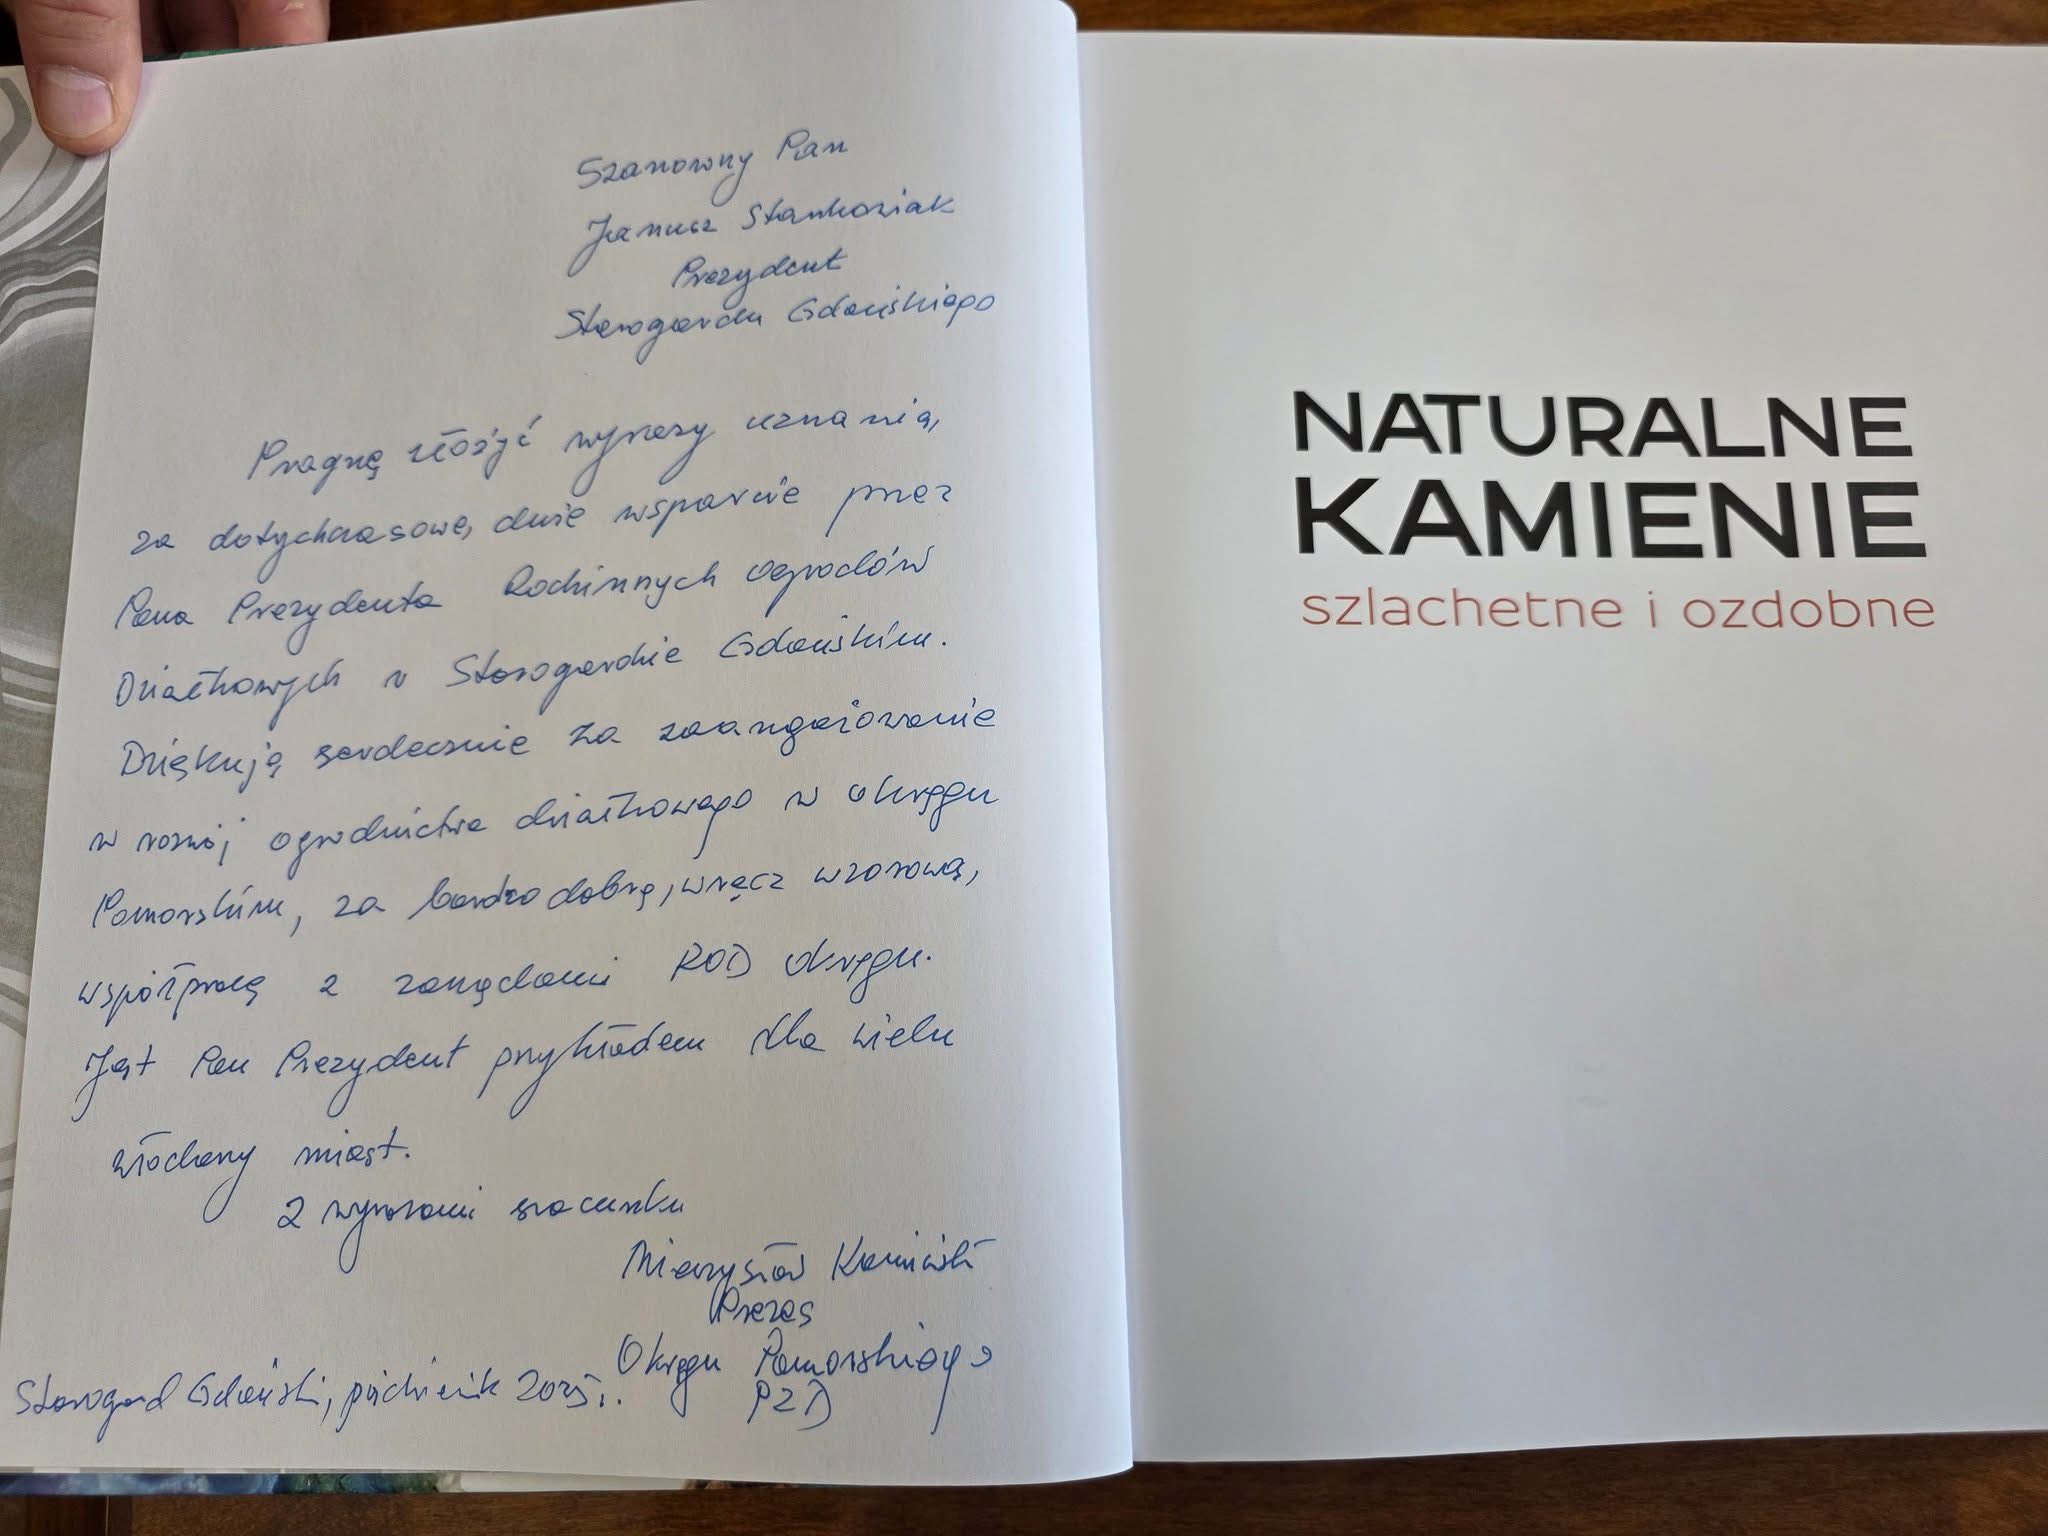 Szanowny Pan
Janusz Stankowiak
Prezydent
Starogardu Gdańskiego
Pragnę złożyć wyrazy uznania,
za dotychczasowe, duże wsparcie przez
Pana Prezydenta Rodzinnych Ogrodów
Działkowych w Starogardzie Gdańskim.
Dziękuję serdecznie za zaangażowanie
w rozwój ogrodnictwa działkowego w okręgu
Pomorskim, za bardzo dobrą, wręcz wzorową,
współpracę z zarządami ROD okręgu.
Jest Pan Prezydent przykładem dla wielu
włodarzy miast.
Z wyrazami szacunku
Mieczysław Kamiński
Prezes
Okręgu Pomorskiego
PZD
Starogard Gdański, październik 2025r.
NATURALNE
KAMIENIE
szlachetne i ozdobne